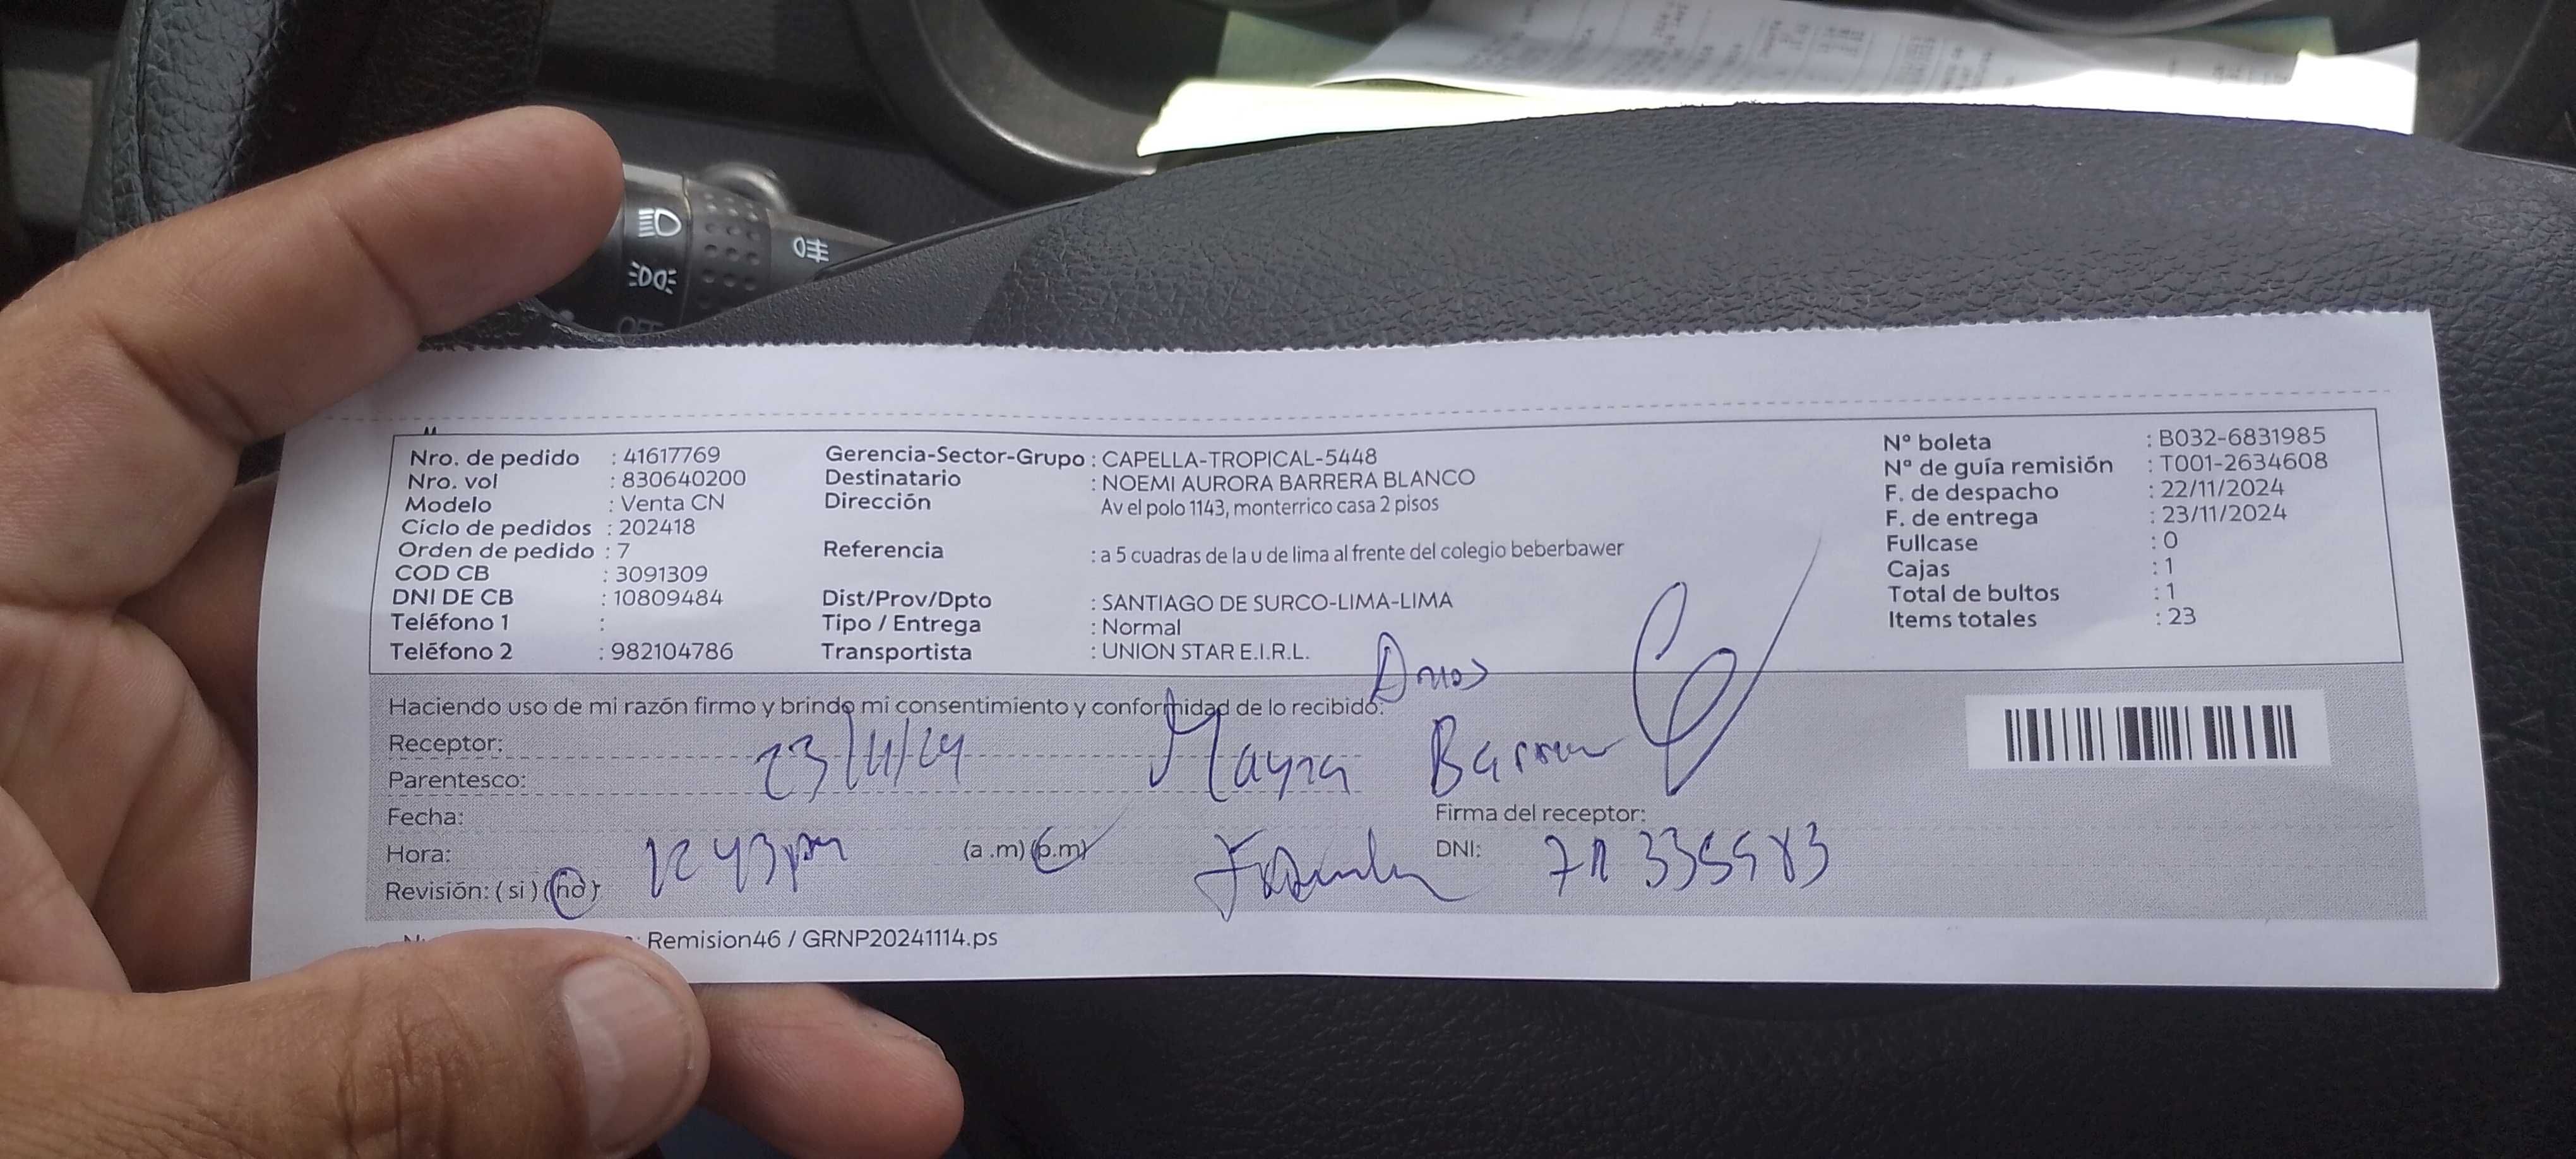 Nro. de pedido : 41617769
Nro. vol : 830640200
Modelo : Venta CN
Ciclo de pedidos : 202418
Orden de pedido : 7
COD CB : 3091309
DNI DE CB : 10809484
Teléfono 1 :
Teléfono 2 : 982104786
Gerencia-Sector-Grupo : CAPELLA-TROPICAL-5448
Destinatario : NOEMI AURORA BARRERA BLANCO
Dirección Av el polo 1143, monterrico casa 2 pisos
Referencia : a 5 cuadras de la u de lima al frente del colegio beberbawer
Dist/Prov/Dpto : SANTIAGO DE SURCO-LIMA-LIMA
Tipo / Entrega : Normal
Transportista : UNION STAR E.I.R.L.
N° boleta : B032-6831985
N° de guía remisión : T001-2634608
F. de despacho : 22/11/2024
F. de entrega : 23/11/2024
Fullcase : 0
Cajas : 1
Total de bultos : 1
Items totales : 23
Haciendo uso de mi razón firmo y brindo mi consentimiento y conformidad de lo recibido:
Receptor:
23/11/24 Mayra
Parentesco:
Fecha:
Firma del receptor:
Hora: 12 43 pm (a .m) (p.m)
DNI:
Revisión: ( si ) (no)
Remision46 / GRNP20241114.ps
OFF